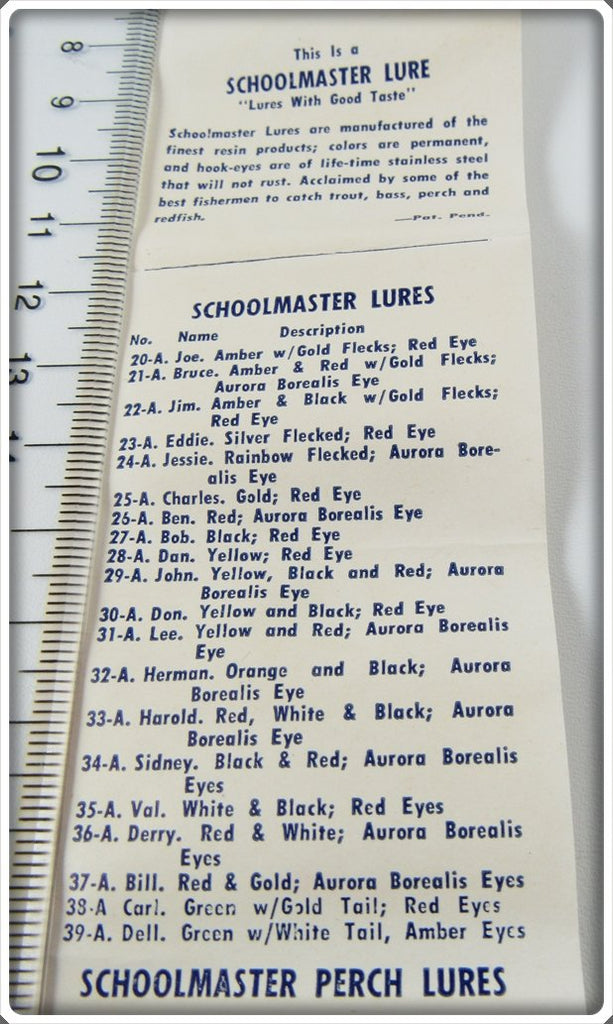 8
9
10
11
12
13
This Is a
SCHOOLMASTER LURE
"Lures With Good Taste"
Schoolmaster Lures are manufactured of the
finest resin products; colors are permanent,
and hook-eyes are of life-time stainless steel
that will not rust. Acclaimed by some of the
best fishermen to catch trout, bass, perch and
redfish. —Pat. Pend.
SCHOOLMASTER LURES
No. Name Description
20-A. Joe. Amber w/Gold Flecks; Red Eye
21-A. Bruce. Amber & Red w/Gold Flecks;
Aurora Borealis Eye
22-A. Jim. Amber & Black w/Gold Flecks;
Red Eye
23-A. Eddie. Silver Flecked; Red Eye
24-A. Jessie. Rainbow Flecked; Aurora Bore-
alis Eye
25-A. Charles. Gold; Red Eye
26-A. Ben. Red; Aurora Borealis Eye
27-A. Bob. Black; Red Eye
28-A. Dan. Yellow; Red Eye
29-A. John. Yellow, Black and Red; Aurora
Borealis Eye
30-A. Don. Yellow and Black; Red Eye
31-A. Lee. Yellow and Red; Aurora Borealis
Eye
32-A. Herman. Orange and Black; Aurora
Borealis Eye
33-A. Harold. Red, White & Black; Aurora
Borealis Eye
34-A. Sidney. Black & Red; Aurora Borealis
Eyes
35-A. Val. White & Black; Red Eyes
36-A. Derry. Red & White; Aurora Borealis
Eyes
37-A. Bill. Red & Gold; Aurora Borealis Eyes
38-A Carl. Green w/Gold Tail; Red Eyes
39-A. Dell. Green w/White Tail, Amber Eyes
SCHOOLMASTER PERCH LURES